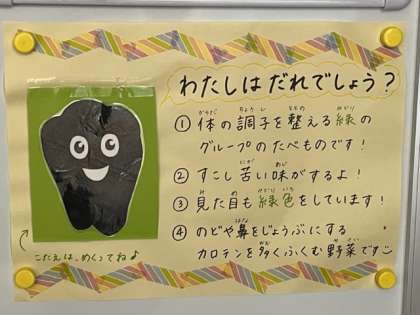 わたしはだれでしょう？
① 体の調子を整える緑の
グループのたべものです！
② すこし苦い味がするよ！
③ 見た目も緑色をしています！
④ のどや鼻をじょうぶにする
カロテンを多くふくむ野菜です
こたえは、めくってね♪